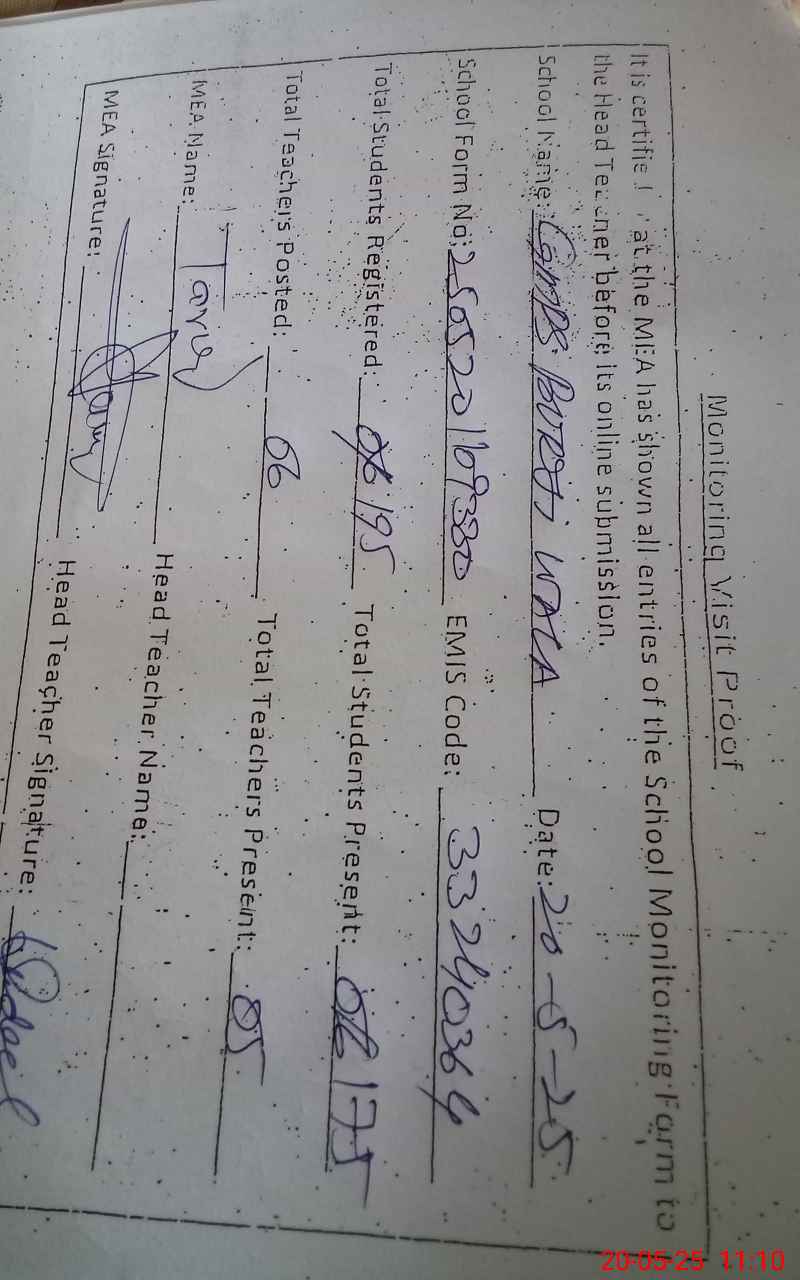 Monitoring Visit Proof
It is certified that the MEA has shown all entries of the School Monitoring Form to
the Head Teacher before its online submission.
School Name: WALA Date: 20-5-25
School Form No: EMIS Code: 33240364
Total Students Registered: 195 Total Students Present: 175
Total Teachers Posted: 06 Total Teachers Present: 05
MEA Name: Head Teacher Name:
MEA Signature: Head Teacher Signature:
20-05-25 11:10